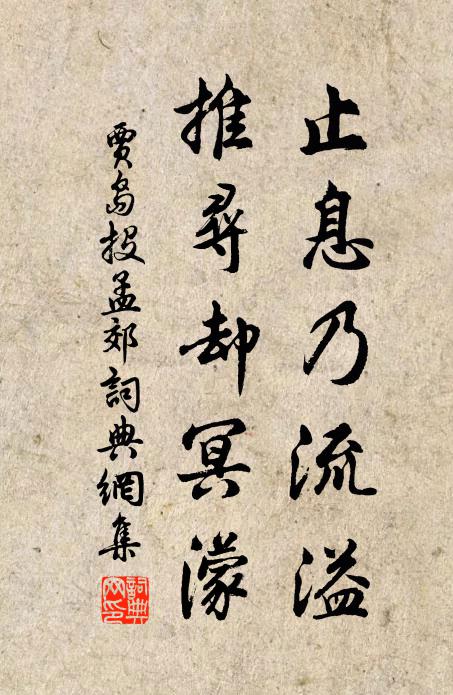 止息乃流溢
推尋却冥濛
賈島投孟郊詞典網集
詞典网印